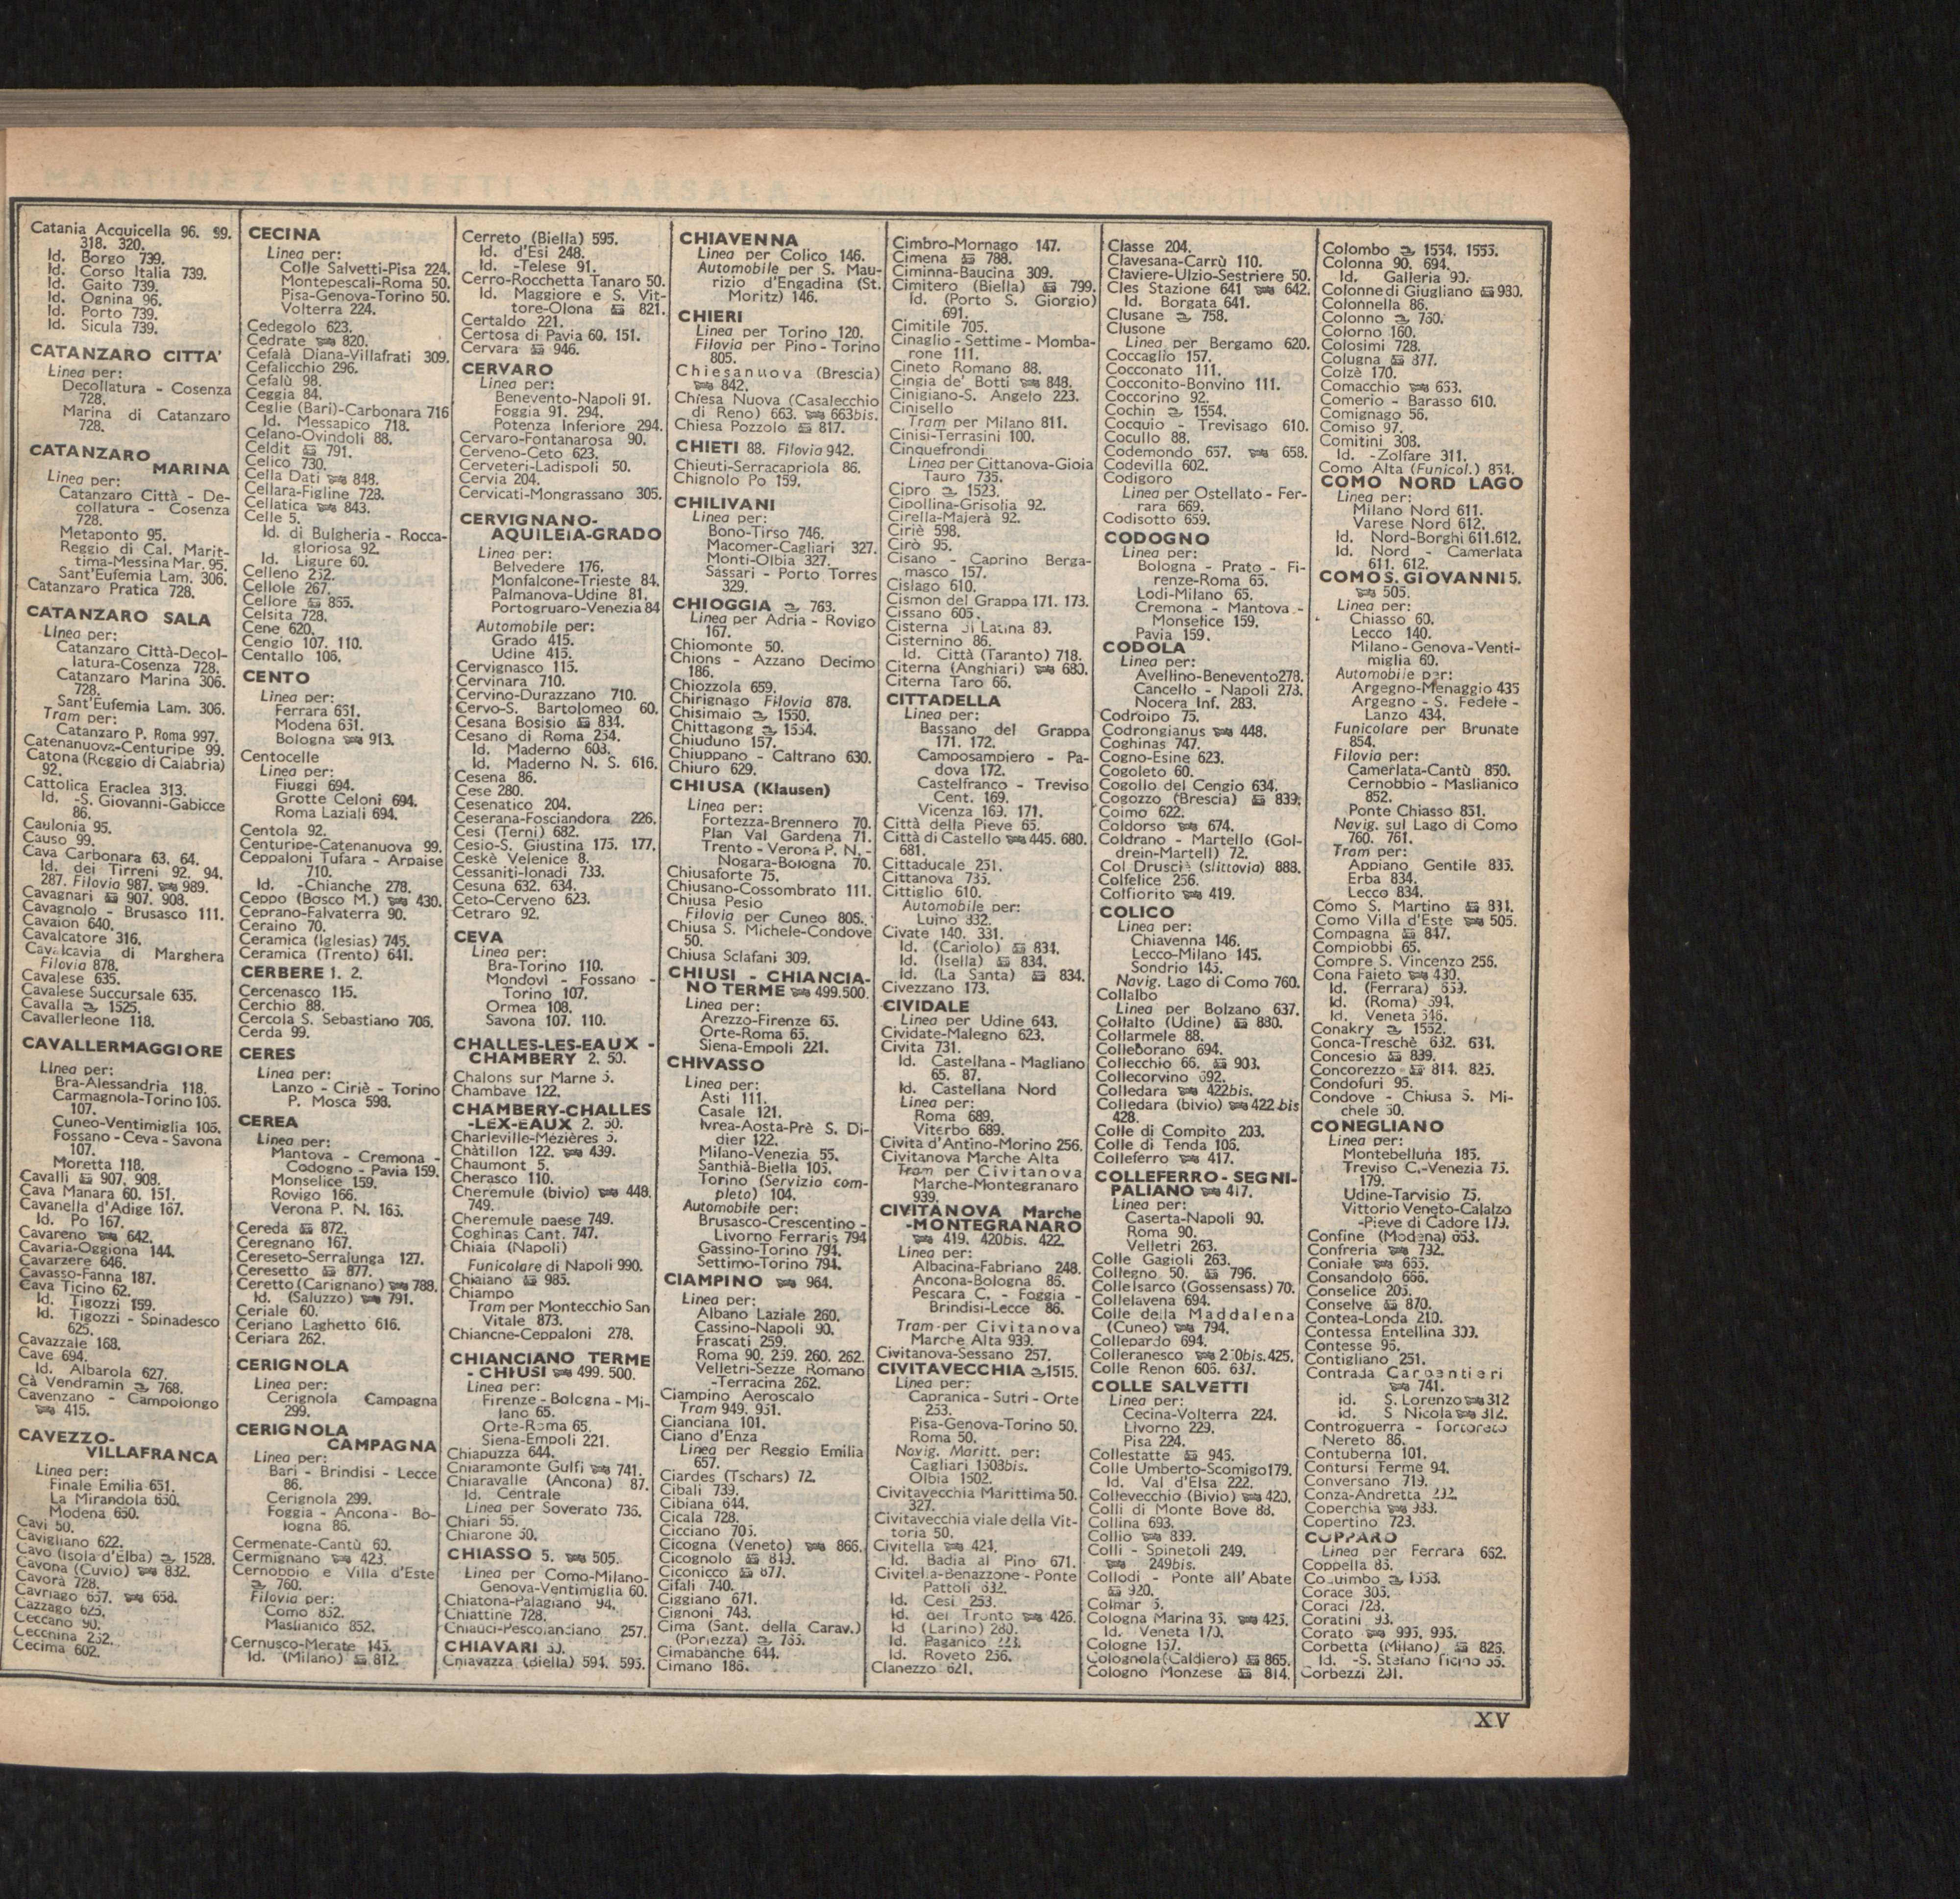 Catania Acquicella 96. 99.
318. 320.
Id. Borgo 739.
Id. Corso Italia 739.
Id. Gaito 739.
Id. Ognina 96.
Id. Porto 739.
Id. Sicula 739.
CATANZARO CITTA'
Linea per:
Decollatura - Cosenza
728.
Marina di Catanzaro
728.
CATANZARO
MARINA
Linea per:
Catanzaro Città - De-
collatura - Cosenza
728.
Metaponto 95.
Reggio di Cal. Marit-
tima-Messina Mar. 95.
Sant'Eufemia Lam. 306.
Catanzaro Pratica 728.
CATANZARO SALA
Linea per:
Catanzaro Città-Decol-
latura-Cosenza 728.
Catanzaro Marina 306.
728.
Sant'Eufemia Lam. 306.
Tram per:
Catanzaro P. Roma 997.
Catenanuova-Centuripe 99.
Catona (Reggio di Calabria)
92.
Cattolica Eraclea 313.
Id. -S. Giovanni-Gabicce
86.
Caulonia 95.
Causo 99.
Cava Carbonara 63. 64.
Id. dei Tirreni 92. 94.
287. Filovia 987. 989.
Cavagnari 907. 908.
Cavagnolo - Brusasco 111.
Cavaion 640.
Cavalcatore 316.
Cavalcavia di Marghera
Filovia 878.
Cavalese 635.
Cavalese Succursale 635.
Cavalla 1525.
Cavallerleone 118.
CAVALLERMAGGIORE
Linea per:
Bra-Alessandria 118.
Carmagnola-Torino 106.
107.
Cuneo-Ventimiglia 106.
Fossano - Ceva - Savona
107.
Moretta 118.
Cavalli 907. 908.
Cava Manara 60. 151.
Cavanella d'Adige 167.
Id. Po 167.
Cavareno 642.
Cavaria-Oggiona 144.
Cavarzere 646.
Cavasso-Fanna 187.
Cava Ticino 62.
Id. Tigozzi 159.
Id. Tigozzi - Spinadesco
625.
Cavazzale 168.
Cave 694.
Id. Albarola 627.
Cà Vendramin 768.
Cavenzano - Campolongo
415.
CAVEZZO-
VILLAFRANCA
Linea per:
Finale Emilia 651.
La Mirandola 650.
Modena 650.
Cavi 50.
Cavigliano 622.
Cavo (Isola d'Elba) 1528.
Cavona (Cuvio) 832.
Cavorà 728.
Cavriago 657. 658.
Cazzago 625.
Ceccano 90.
Cecchina 262.
Cecima 602.
CECINA
Linea per:
Colle Salvetti-Pisa 224.
Montepescali-Roma 50.
Pisa-Genova-Torino 50.
Volterra 224.
Cedegolo 623.
Cedrate 820.
Cefalà Diana-Villafrati 309.
Cefalicchio 296.
Cefalù 98.
Ceggia 84.
Ceglie (Bari)-Carbonara 716
Id. Messapico 718.
Celano-Ovindoli 88.
Celdit 791.
Celico 730.
Cella Dati 848.
Cellara-Figline 728.
Cellatica 843.
Celle 5.
Id. di Bulgheria - Rocca-
gloriosa 92.
Id. Ligure 60.
Celleno 252.
Cellole 267.
Cellore 865.
Celsita 728.
Cene 620.
Cengio 107. 110.
Centallo 106.
CENTO
Linea per:
Ferrara 651.
Modena 651.
Bologna 913.
Centocelle
Linea per:
Fiuggi 694.
Grotte Celoni 694.
Roma Laziali 694.
Centola 92.
Centuripe-Catenanuova 99.
Ceppaloni Tufara - Arpaise
710.
Id. -Chianche 278.
Ceppo (Bosco M.) 430.
Ceprano-Falvaterra 90.
Ceraino 70.
Ceramica (Iglesias) 745.
Ceramica (Trento) 641.
CERBERE 1. 2.
Cercenasco 115.
Cerchio 88.
Cercola S. Sebastiano 706.
Cerda 99.
CERES
Linea per:
Lanzo - Ciriè - Torino
P. Mosca 598.
CEREA
Linea per:
Mantova - Cremona -
Codogno - Pavia 159.
Monselice 159.
Rovigo 166.
Verona P. N. 165.
Cereda 872.
Ceregnano 167.
Cereseto-Serralunga 127.
Ceresetto 877.
Ceretto (Carignano) 788.
Id. (Saluzzo) 791.
Ceriale 60.
Ceriano Laghetto 616.
Ceriara 262.
CERIGNOLA
Linea per:
Cerignola Campagna
299.
CERIGNOLA
CAMPAGNA
Linea per:
Bari - Brindisi - Lecce
86.
Cerignola 299.
Foggia - Ancona - Bo-
logna 86.
Cermenate-Cantù 60.
Cermignano 423.
Cernobbio e Villa d'Este
760.
Filovia per:
Como 852.
Maslianico 852.
Cernusco-Merate 145.
Id. (Milano) 812.
Cerreto (Biella) 595.
Id. d'Esi 248.
Id. -Telese 91.
Cerro-Rocchetta Tanaro 50.
Id. Maggiore e S. Vit-
tore-Olona 821.
Certaldo 221.
Certosa di Pavia 60. 151.
Cervara 946.
CERVARO
Linea per:
Benevento-Napoli 91.
Foggia 91. 294.
Potenza Inferiore 294.
Cervaro-Fontanarosa 90.
Cerveno-Ceto 623.
Cerveteri-Ladispoli 50.
Cervia 204.
Cervicati-Mongrassano 305.
CERVIGNANO-
AQUILEIA-GRADO
Linea per:
Belvedere 176.
Monfalcone-Trieste 84.
Palmanova-Udine 81.
Portogruaro-Venezia 84
Automobile per:
Grado 415.
Udine 415.
Cervignasco 115.
Cervinara 710.
Cervino-Durazzano 710.
Cervo-S. Bartolomeo 60.
Cesana Bosisio 834.
Cesano di Roma 254.
Id. Maderno 603.
Id. Maderno N. S. 616.
Cesena 86.
Cese 280.
Cesenatico 204.
Ceserana-Fosciandora 226.
Cesi (Terni) 682.
Cesio-S. Giustina 175. 177.
Ceskè Velenice 8.
Cessaniti-Ionadi 733.
Cesuna 632. 634.
Ceto-Cerveno 623.
Cetraro 92.
CEVA
Linea per:
Bra-Torino 110.
Mondovì - Fossano -
Torino 107.
Ormea 108.
Savona 107. 110.
CHALLES-LES-EAUX -
CHAMBERY 2. 50.
Chalons sur Marne 5.
Chambave 122.
CHAMBERY-CHALLES
-LEX-EAUX 2. 50.
Charleville-Mézières 5.
Châtillon 122. 439.
Chaumont 5.
Cherasco 110.
Cheremule (bivio) 448.
749.
Cheremule paese 749.
Coghinas Cant. 747.
Chiaia (Napoli)
Funicolare di Napoli 990.
Chiaiano 985.
Chiampo
Tram per Montecchio San
Vitale 873.
Chianche-Ceppaloni 278.
CHIANCIANO TERME
- CHIUSI 499. 500.
Linea per:
Firenze - Bologna - Mi-
lano 65.
Orte-Roma 65.
Siena-Empoli 221.
Chiapuzza 644.
Chiaramonte Gulfi 741.
Chiaravalle (Ancona) 87.
Id. Centrale
Linea per Soverato 736.
Chiari 55.
Chiarone 50.
CHIASSO 5. 505.
Linea per Como-Milano-
Genova-Ventimiglia 60.
Chiatona-Palagiano 94.
Chiattine 728.
Chiauci-Pescolanciano 257.
CHIAVARI 50.
Chiavazza (Biella) 594. 595.
CHIAVENNA
Linea per Colico 146.
Automobile per S. Mau-
rizio d'Engadina (St.
Moritz) 146.
CHIERI
Linea per Torino 120.
Filovia per Pino - Torino
805.
Chiesanuova (Brescia)
842.
Chiesa Nuova (Casalecchio
di Reno) 663. 663bis.
Chiesa Pozzolo 817.
CHIETI 88. Filovia 942.
Chieuti-Serracapriola 86.
Chignolo Po 159.
CHILIVANI
Linea per:
Bono-Tirso 746.
Macomer-Cagliari 327.
Monti-Olbia 327.
Sassari - Porto Torres
329.
CHIOGGIA 763.
Linea per Adria - Rovigo
167.
Chiomonte 50.
Chions - Azzano Decimo
186.
Chiozzola 659.
Chirignago Filovia 878.
Chisimaio 1550.
Chittagong 1554.
Chiuduno 157.
Chiuppano - Caltrano 630.
Chiuro 629.
CHIUSA (Klausen)
Linea per:
Fortezza-Brennero 70.
Plan Val Gardena 71.
Trento - Verona P. N. -
Nogara-Bologna 70.
Chiusaforte 75.
Chiusano-Cossombrato 111.
Chiusa Pesio
Filovia per Cuneo 805.
Chiusa S. Michele-Condove
50.
Chiusa Sclafani 309.
CHIUSI - CHIANCIA-
NO TERME 499.500.
Linea per:
Arezzo-Firenze 65.
Orte-Roma 65.
Siena-Empoli 221.
CHIVASSO
Linea per:
Asti 111.
Casale 121.
Ivrea-Aosta-Prè S. Di-
dier 122.
Milano-Venezia 55.
Santhià-Biella 105.
Torino (Servizio com-
pleto) 104.
Automobile per:
Brusasco-Crescentino -
Livorno Ferraris 794
Gassino-Torino 794.
Settimo-Torino 794.
CIAMPINO 964.
Linea per:
Albano Laziale 260.
Cassino-Napoli 90.
Frascati 259.
Roma 90. 259. 260. 262.
Velletri-Sezze Romano
-Terracina 262.
Ciampino Aeroscalo
Tram 949. 951.
Cianciana 101.
Ciano d'Enza
Linea per Reggio Emilia
657.
Ciardes (Tschars) 72.
Cibali 739.
Cibiana 644.
Cicala 728.
Cicciano 705.
Cicogna (Veneto) 866.
Cicognolo 849.
Ciconicco 877.
Cifali 740.
Ciggiano 671.
Cignoni 743.
Cima (Sant. della Carav.)
(Porlezza) 765.
Cimabanche 644.
Cimano 186.
Cimbro-Mornago 147.
Cimena 788.
Ciminna-Baucina 309.
Cimitero (Biella) 799.
Id. (Porto S. Giorgio)
691.
Cimitile 705.
Cinaglio - Settime - Momba-
rone 111.
Cineto Romano 88.
Cingia de' Botti 848.
Cinigiano-S. Angelo 223.
Cinisello
Tram per Milano 811.
Cinisi-Terrasini 100.
Cinquefrondi
Linea per Cittanova-Gioia
Tauro 735.
Cipro 1523.
Cipollina-Grisolia 92.
Cirella-Majerà 92.
Ciriè 598.
Cirò 95.
Cisano - Caprino Berga-
masco 157.
Cislago 610.
Cismon del Grappa 171. 173.
Cissano 605.
Cisterna di Latina 89.
Cisternino 86.
Id. Città (Taranto) 718.
Citerna (Anghiari) 680.
Citerna Taro 66.
CITTADELLA
Linea per:
Bassano del Grappa
171. 172.
Camposampiero - Pa-
dova 172.
Castelfranco - Treviso
Cent. 169.
Vicenza 169. 171.
Città della Pieve 65.
Città di Castello 445. 680.
681.
Cittaducale 251.
Cittanova 735.
Cittiglio 610.
Automobile per:
Luino 332.
Civate 140. 331.
Id. (Cariolo) 834.
Id. (Isella) 834.
Id. (La Santa) 834.
Civezzano 173.
CIVIDALE
Linea per Udine 643.
Cividate-Malegno 623.
Civita 731.
Id. Castellana - Magliano
65. 87.
Id. Castellana Nord
Linea per:
Roma 689.
Viterbo 689.
Civita d'Antino-Morino 256.
Civitanova Marche Alta
Tram per Civitanova
Marche-Montegranaro
939.
CIVITANOVA Marche
-MONTEGRANARO
419. 420bis. 422.
Linea per:
Albacina-Fabriano 248.
Ancona-Bologna 86.
Pescara C. - Foggia -
Brindisi-Lecce 86.
Tram per Civitanova
Marche Alta 939.
Civitanova-Sessano 257.
CIVITAVECCHIA 1515.
Linea per:
Capranica - Sutri - Orte
253.
Pisa-Genova-Torino 50.
Roma 50.
Navig. Maritt. per:
Cagliari 1503bis.
Olbia 1502.
Civitavecchia Marittima 50.
327.
Civitavecchia viale della Vit-
toria 50.
Civitella 424.
Id. Badia al Pino 671.
Civitella-Benazzone - Ponte
Pattoli 632.
Id. Cesi 253.
Id. del Tronto 426.
Id (Larino) 280.
Id. Paganico 223.
Id. Roveto 256.
Clanezzo 621.
Classe 204.
Clavesana-Carrù 110.
Claviere-Ulzio-Sestriere 50.
Cles Stazione 641 642.
Id. Borgata 641.
Clusane 758.
Clusone
Linea per Bergamo 620.
Coccaglio 157.
Cocconato 111.
Cocconito-Bonvino 111.
Coccorino 92.
Cochin 1554.
Cocquio - Trevisago 610.
Cocullo 88.
Codemondo 657. 658.
Codevilla 602.
Codigoro
Linea per Ostellato - Fer-
rara 669.
Codisotto 659.
CODOGNO
Linea per:
Bologna - Prato - Fi-
renze-Roma 65.
Lodi-Milano 65.
Cremona - Mantova -
Monselice 159.
Pavia 159.
CODOLA
Linea per:
Avellino-Benevento 278.
Cancello - Napoli 278.
Nocera Inf. 283.
Codroipo 75.
Codrongianus 448.
Coghinas 747.
Cogno-Esine 623.
Cogoleto 60.
Cogollo del Cengio 634.
Cogozzo (Brescia) 839.
Coimo 622.
Coldorso 674.
Coldrano - Martello (Gol-
drein-Martell) 72.
Col Druscìè (slittovia) 888.
Colfelice 256.
Colfiorito 419.
COLICO
Linea per:
Chiavenna 146.
Lecco-Milano 145.
Sondrio 145.
Navig. Lago di Como 760.
Collalbo
Linea per Bolzano 637.
Collalto (Udine) 880.
Collarmele 88.
Colleborano 694.
Collecchio 66. 903.
Collecorvino 692.
Colledara 422bis.
Colledara (bivio) 422 bis
428.
Colle di Compito 203.
Colle di Tenda 106.
Colleferro 417.
COLLEFERRO - SEGNI-
PALIANO 417.
Linea per:
Caserta-Napoli 90.
Roma 90.
Velletri 263.
Colle Gagioli 263.
Collegno 50. 796.
Collelsarco (Gossensass) 70.
Collelavena 694.
Colle della Maddalena
(Cuneo) 794.
Collepardo 694.
Colleranesco 425.
Colle Renon 606. 637.
COLLE SALVETTI
Linea per:
Cecina-Volterra 224.
Livorno 229.
Pisa 224.
Collestatte 945.
Colle Umberto-Scomigo 179.
Id. Val d'Elsa 222.
Collevecchio (Bivio) 420.
Colli di Monte Bove 88.
Collina 693.
Collio 839.
Colli - Spinetoli 249.
249bis.
Collodi - Ponte all'Abate
920.
Colmar 5.
Cologna Marina 85. 425.
Id. Veneta 170.
Cologne 157.
Colognola (Caldiero) 865.
Cologno Monzese 814.
Colombo 1554. 1555.
Colonna 90. 694.
Id. Galleria 90.
Colonne di Giugliano 980.
Colonnella 86.
Colonno 760.
Colorno 160.
Colosimi 728.
Colugna 877.
Colzè 170.
Comacchio 663.
Comerio - Barasso 610.
Comignago 56.
Comiso 97.
Comitini 308.
Id. -Zolfare 311.
Como Alta (Funicol.) 854.
COMO NORD LAGO
Linea per:
Milano Nord 611.
Varese Nord 612.
Id. Nord-Borghi 611.612.
Id. Nord - Camerlata
611. 612.
COMO S. GIOVANNI 5.
505.
Linea per:
Chiasso 60.
Lecco 140.
Milano-Genova-Venti-
miglia 60.
Automobile per:
Argegno-Menaggio 435
Argegno - S. Fedele -
Lanzo 434.
Funicolare per Brunate
854.
Filovia per:
Camerlata-Cantù 850.
Cernobbio - Maslianico
852.
Ponte Chiasso 851.
Navig. sul Lago di Como
760. 761.
Tram per:
Appiano Gentile 835.
Erba 834.
Lecco 834.
Como S. Martino 834.
Como Villa d'Este 505.
Compagna 847.
Compiobbi 65.
Compre S. Vincenzo 256.
Cona Faieto 430.
Id. (Ferrara) 669.
Id. (Roma) 694.
Id. Veneta 646.
Conakry 1552.
Conca-Treschè 632. 634.
Concesio 839.
Concorezzo 814. 825.
Condofuri 95.
Condove - Chiusa S. Mi-
chele 50.
CONEGLIANO
Linea per:
Montebelluna 185.
Treviso C.-Venezia 75.
179.
Udine-Tarvisio 75.
Vittorio Veneto-Calalzo
-Pieve di Cadore 179.
Confine (Modena) 653.
Confreria 792.
Coniale 665.
Consandolo 666.
Conselice 205.
Conselve 870.
Contea-Londa 210.
Contessa Entellina 309.
Contesse 96.
Contigliano 251.
Contrada Carpentieri
741.
id. S. Lorenzo 312
id. S Nicola 312.
Controguerra - Tortoreto
Nereto 86.
Contuberna 101.
Contursi Terme 94.
Conversano 719.
Conza-Andretta 292.
Coperchia 983.
Copertino 723.
COPPARO
Linea per Ferrara 662.
Coppella 85.
Coquimbo 1553.
Corace 305.
Coraci 728.
Coratini 93.
Corato 995. 996.
Corbetta (Milano) 826.
Id. -S. Stefano Ticino 55.
Corbezzi 201.
XV